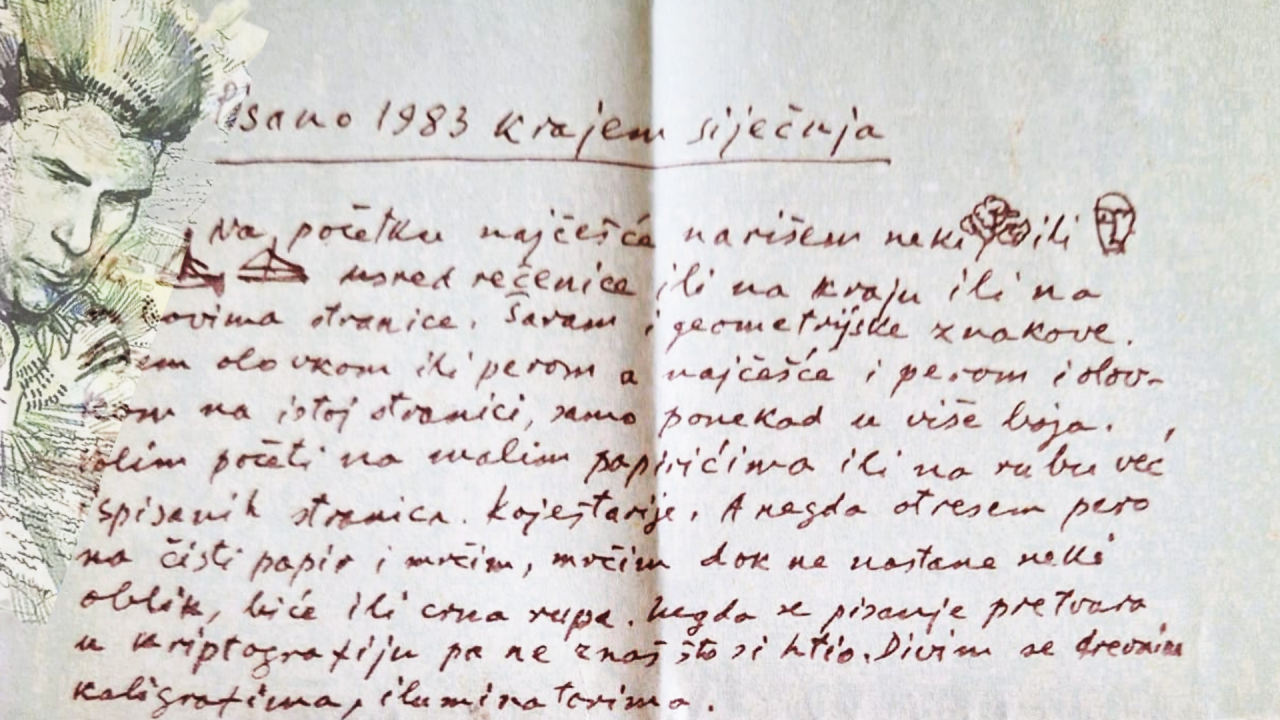 Pisano 1983 krajem siječnja
Na početku najčešće narišem neki ili
usred rečenice ili na kraju ili na
ovima stranice. Šaram i geometrijske znakove.
em olovkom ili perom a najčešće i perom i olov-
kom na istoj stranici, samo ponekad u više boja.
olim početi na malim papirićima ili na rubu već
ispisanih stranica. Koještarije. A negda otresem pero
na čisti papir i mrčim, mrčim dok ne nastane neki
oblik, biće ili crna rupa. Negda se pisanje pretvara
u kriptografiju pa ne znaš što si htio. Divim se drevnim
kaligrafima, iluminatorima.